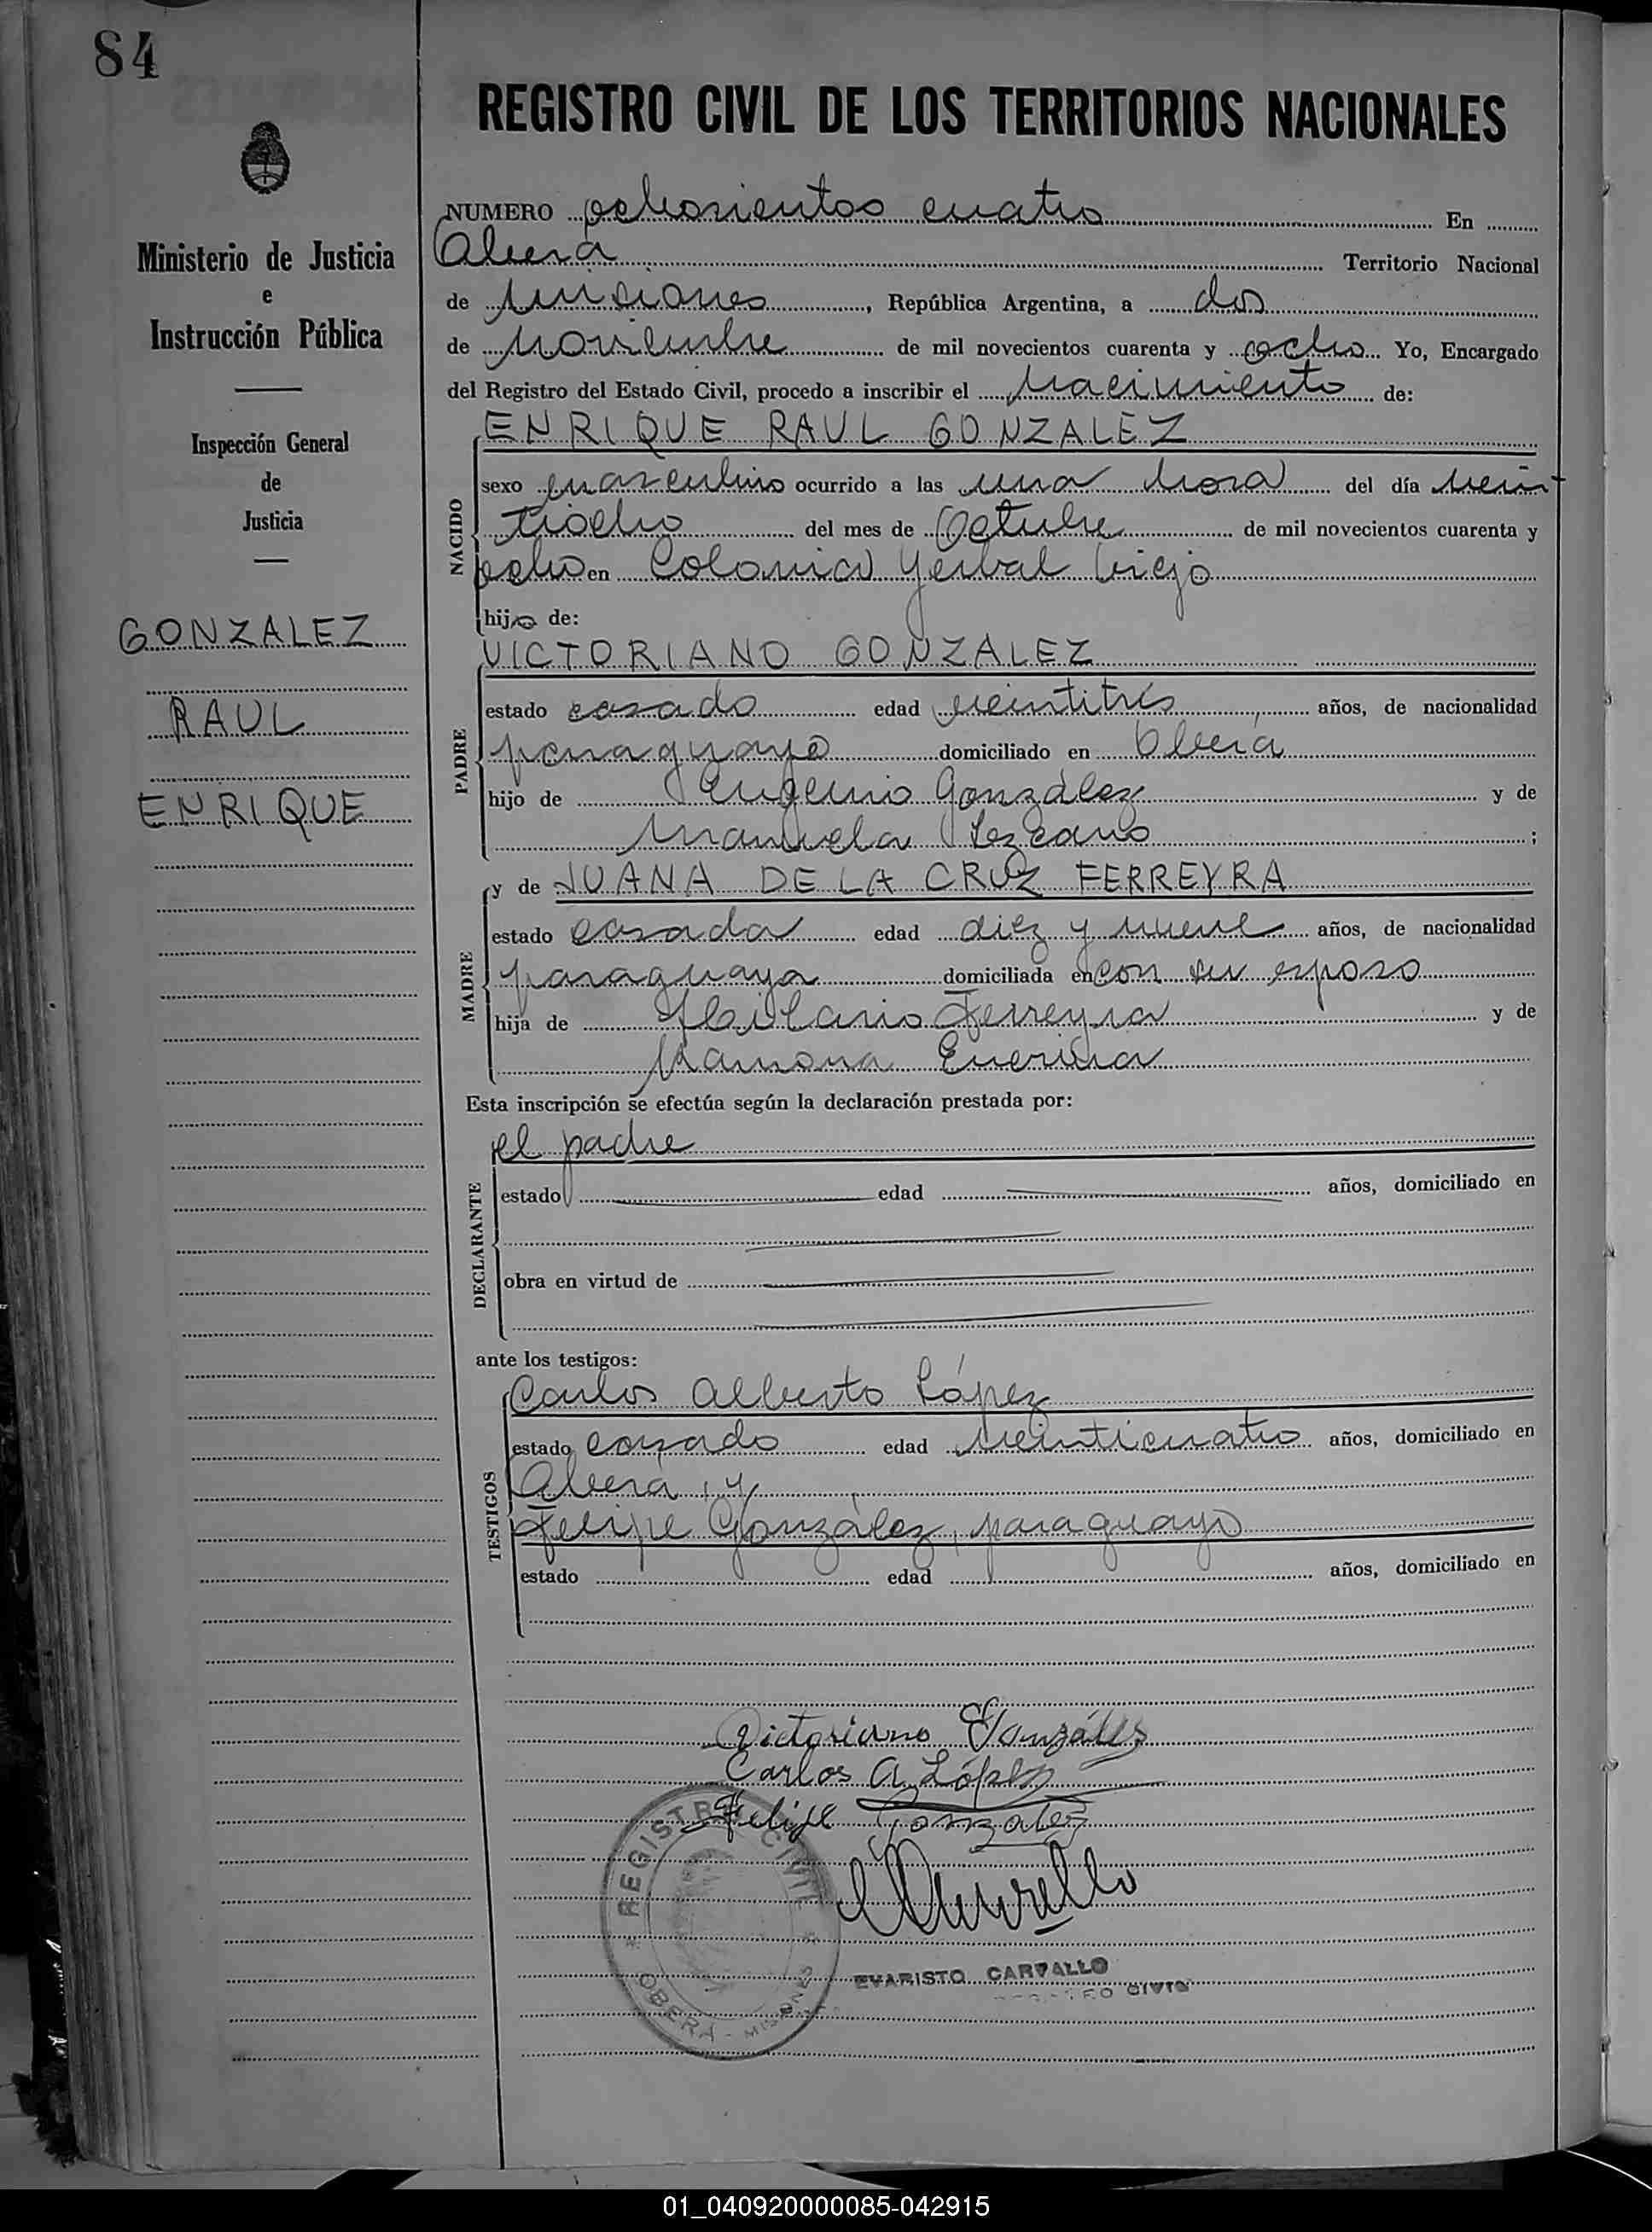 84
REGISTRO CIVIL DE LOS TERRITORIOS NACIONALES
Ministerio de Justicia
e
Instrucción Pública
Inspección General
de
Justicia
GONZALEZ
RAUL
ENRIQUE
NUMERO ochocientos cuatro En
Oberá Territorio Nacional
de Misiones, República Argentina, a dos
de Noviembre de mil novecientos cuarenta y ocho Yo, Encargado
del Registro del Estado Civil, procedo a inscribir el Nacimiento de:
NACIDO
ENRIQUE RAUL GONZALEZ
sexo masculino ocurrido a las una hora del día vein
tiocho del mes de Octubre de mil novecientos cuarenta y
ocho en Colonia Yerbal Viejo
hijo de:
PADRE
VICTORIANO GONZALEZ
estado casado edad veintitrés años, de nacionalidad
paraguayo domiciliado en Oberá
hijo de Eugenio González y de
Manuela Lezcano ;
MADRE
y de JUANA DE LA CRUZ FERREYRA
estado casada edad diez y nueve años, de nacionalidad
paraguaya domiciliada en con su esposo
hija de Hilario Ferreyra y de
Ramona
Esta inscripción se efectúa según la declaración prestada por:
DECLARANTE
el padre
estado edad años, domiciliado en
obra en virtud de
ante los testigos:
TESTIGOS
Carlos Alberto López
estado casado edad veinticuatro años, domiciliado en
Oberá, y
Felipe González, paraguayo
estado edad años, domiciliado en
Victoriano González
Carlos A. López
Felipe Gonzalez
REGISTRO CIVIL
OBERÁ - MISIONES
EVARISTO CARVALLO
CIVIL
01_040920000085-042915